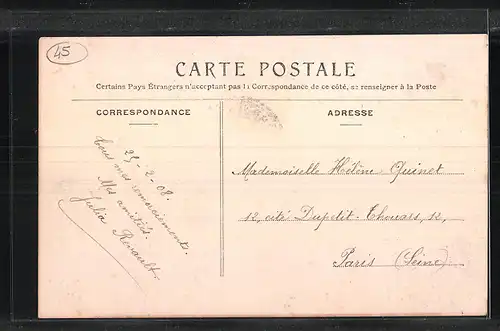 45
CARTE POSTALE
Certains Pays Étrangers n'acceptant pas la Correspondance de ce côté, se renseigner à la Poste
CORRESPONDANCE
ADRESSE
25-2-08.
Tous mes remerciements.
Mes amitiés.
Julia Renault.
Mademoiselle Hélène Quinet
12, cité Dupetit-Thouars, 12,
Paris (Seine).